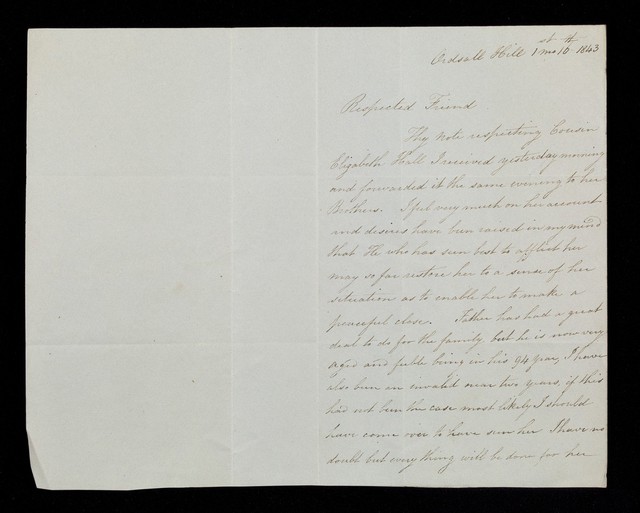 Ordsall Hill 1st mo 10th 1843
Respected Friend
Thy note respecting Cousin
Elizabeth Hall I received yesterday morning
and forwarded it the same evening to her
Brothers. I feel very much on her account
and desires have been raised in my mind
that He who has seen best to afflict her
may so far restore her to a sense of her
situation as to enable her to make a
peaceful close. Father has had a great
deal to do for the family, but he is now very
aged and feeble being in his 94 year, I have
also been an invalid near two years, if this
had not been the case most likely I should
have come over to have seen her I have no
doubt but every thing will be done for her